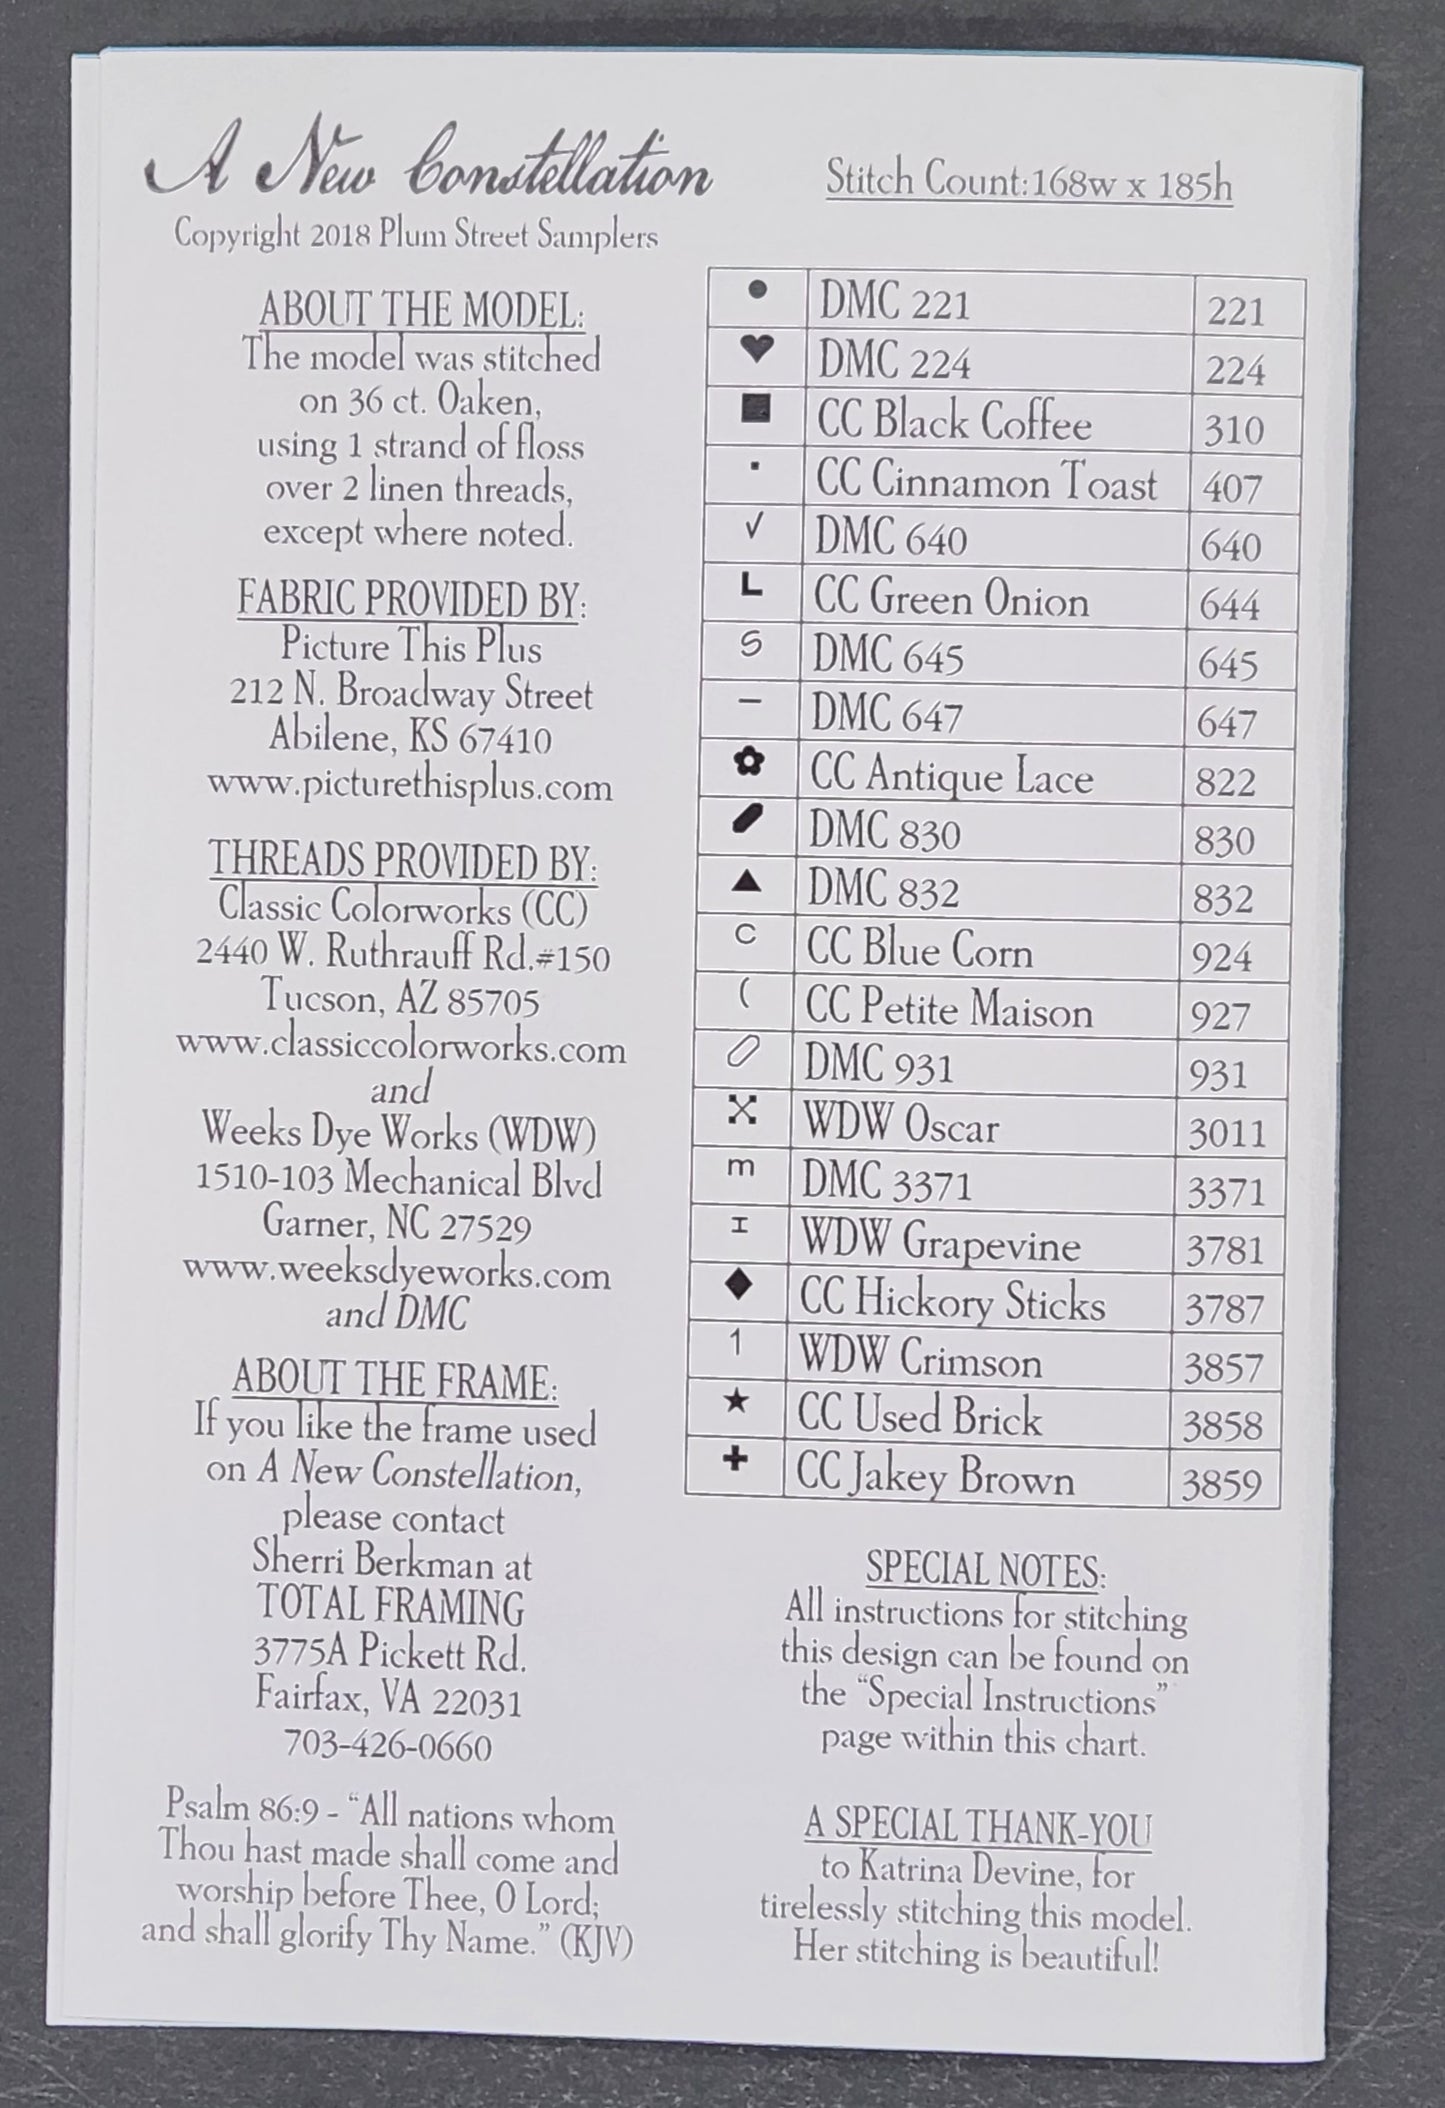 A New Constellation
Copyright 2018 Plum Street Samplers
ABOUT THE MODEL:
The model was stitched
on 36 ct. Oaken,
using 1 strand of floss
over 2 linen threads,
except where noted.
FABRIC PROVIDED BY:
Picture This Plus
212 N. Broadway Street
Abilene, KS 67410
www.picturethisplus.com
THREADS PROVIDED BY:
Classic Colorworks (CC)
2440 W. Ruthrauff Rd.#150
Tucson, AZ 85705
www.classiccolorworks.com
and
Weeks Dye Works (WDW)
1510-103 Mechanical Blvd
Garner, NC 27529
www.weeksdyeworks.com
and DMC
ABOUT THE FRAME:
If you like the frame used
on A New Constellation,
please contact
Sherri Berkman at
TOTAL FRAMING
3775A Pickett Rd.
Fairfax, VA 22031
703-426-0660
Psalm 86:9 - "All nations whom
Thou hast made shall come and
worship before Thee, O Lord;
and shall glorify Thy Name." (KJV)
Stitch Count:168w x 185h
● DMC 221 221
♥ DMC 224 224
■ CC Black Coffee 310
▪ CC Cinnamon Toast 407
√ DMC 640 640
L CC Green Onion 644
S DMC 645 645
– DMC 647 647
✿ CC Antique Lace 822
DMC 830 830
▲ DMC 832 832
C CC Blue Corn 924
( CC Petite Maison 927
DMC 931 931
WDW Oscar 3011
m DMC 3371 3371
I WDW Grapevine 3781
◆ CC Hickory Sticks 3787
1 WDW Crimson 3857
★ CC Used Brick 3858
✚ CC Jakey Brown 3859
SPECIAL NOTES:
All instructions for stitching
this design can be found on
the "Special Instructions"
page within this chart.
A SPECIAL THANK-YOU
to Katrina Devine, for
tirelessly stitching this model.
Her stitching is beautiful!